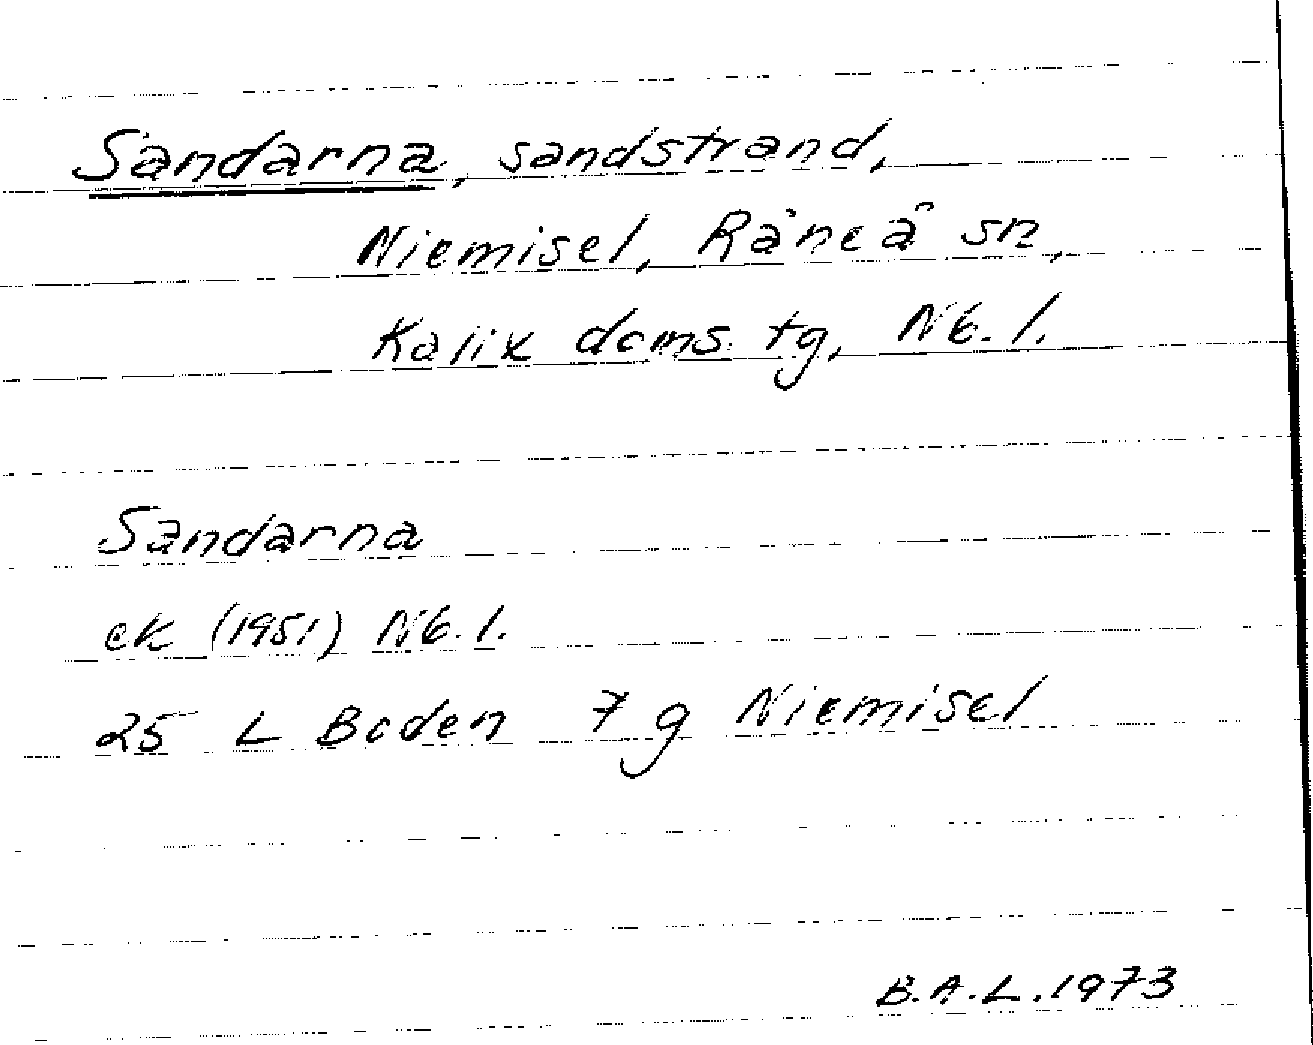 Sandarna, sandstrand,
Niemisel, Råneå sn,
Kalix doms. tg, Nb. l.
Sandarna
ek (1951) Nb. l.
25 L Boden 7 g Niemisel
B.A.L. 1973